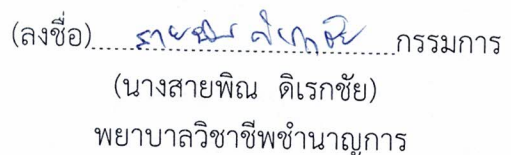 (ลงชื่อ) สายพิณ ดิเรกชัย กรรมการ
(นางสายพิณ ดิเรกชัย)
พยาบาลวิชาชีพชำนาญการ